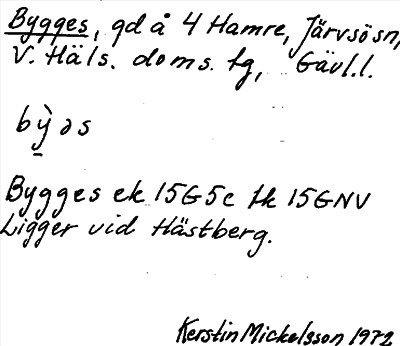 Bygges, gd å 4 Hamre, Järvsösn,
V. Häls. doms. tg, Gävl.l.
bỳ̠əs
Bygges ek 15G5c tk 15GNV
Ligger vid Hästberg.
Kerstin Mickelsson 1972